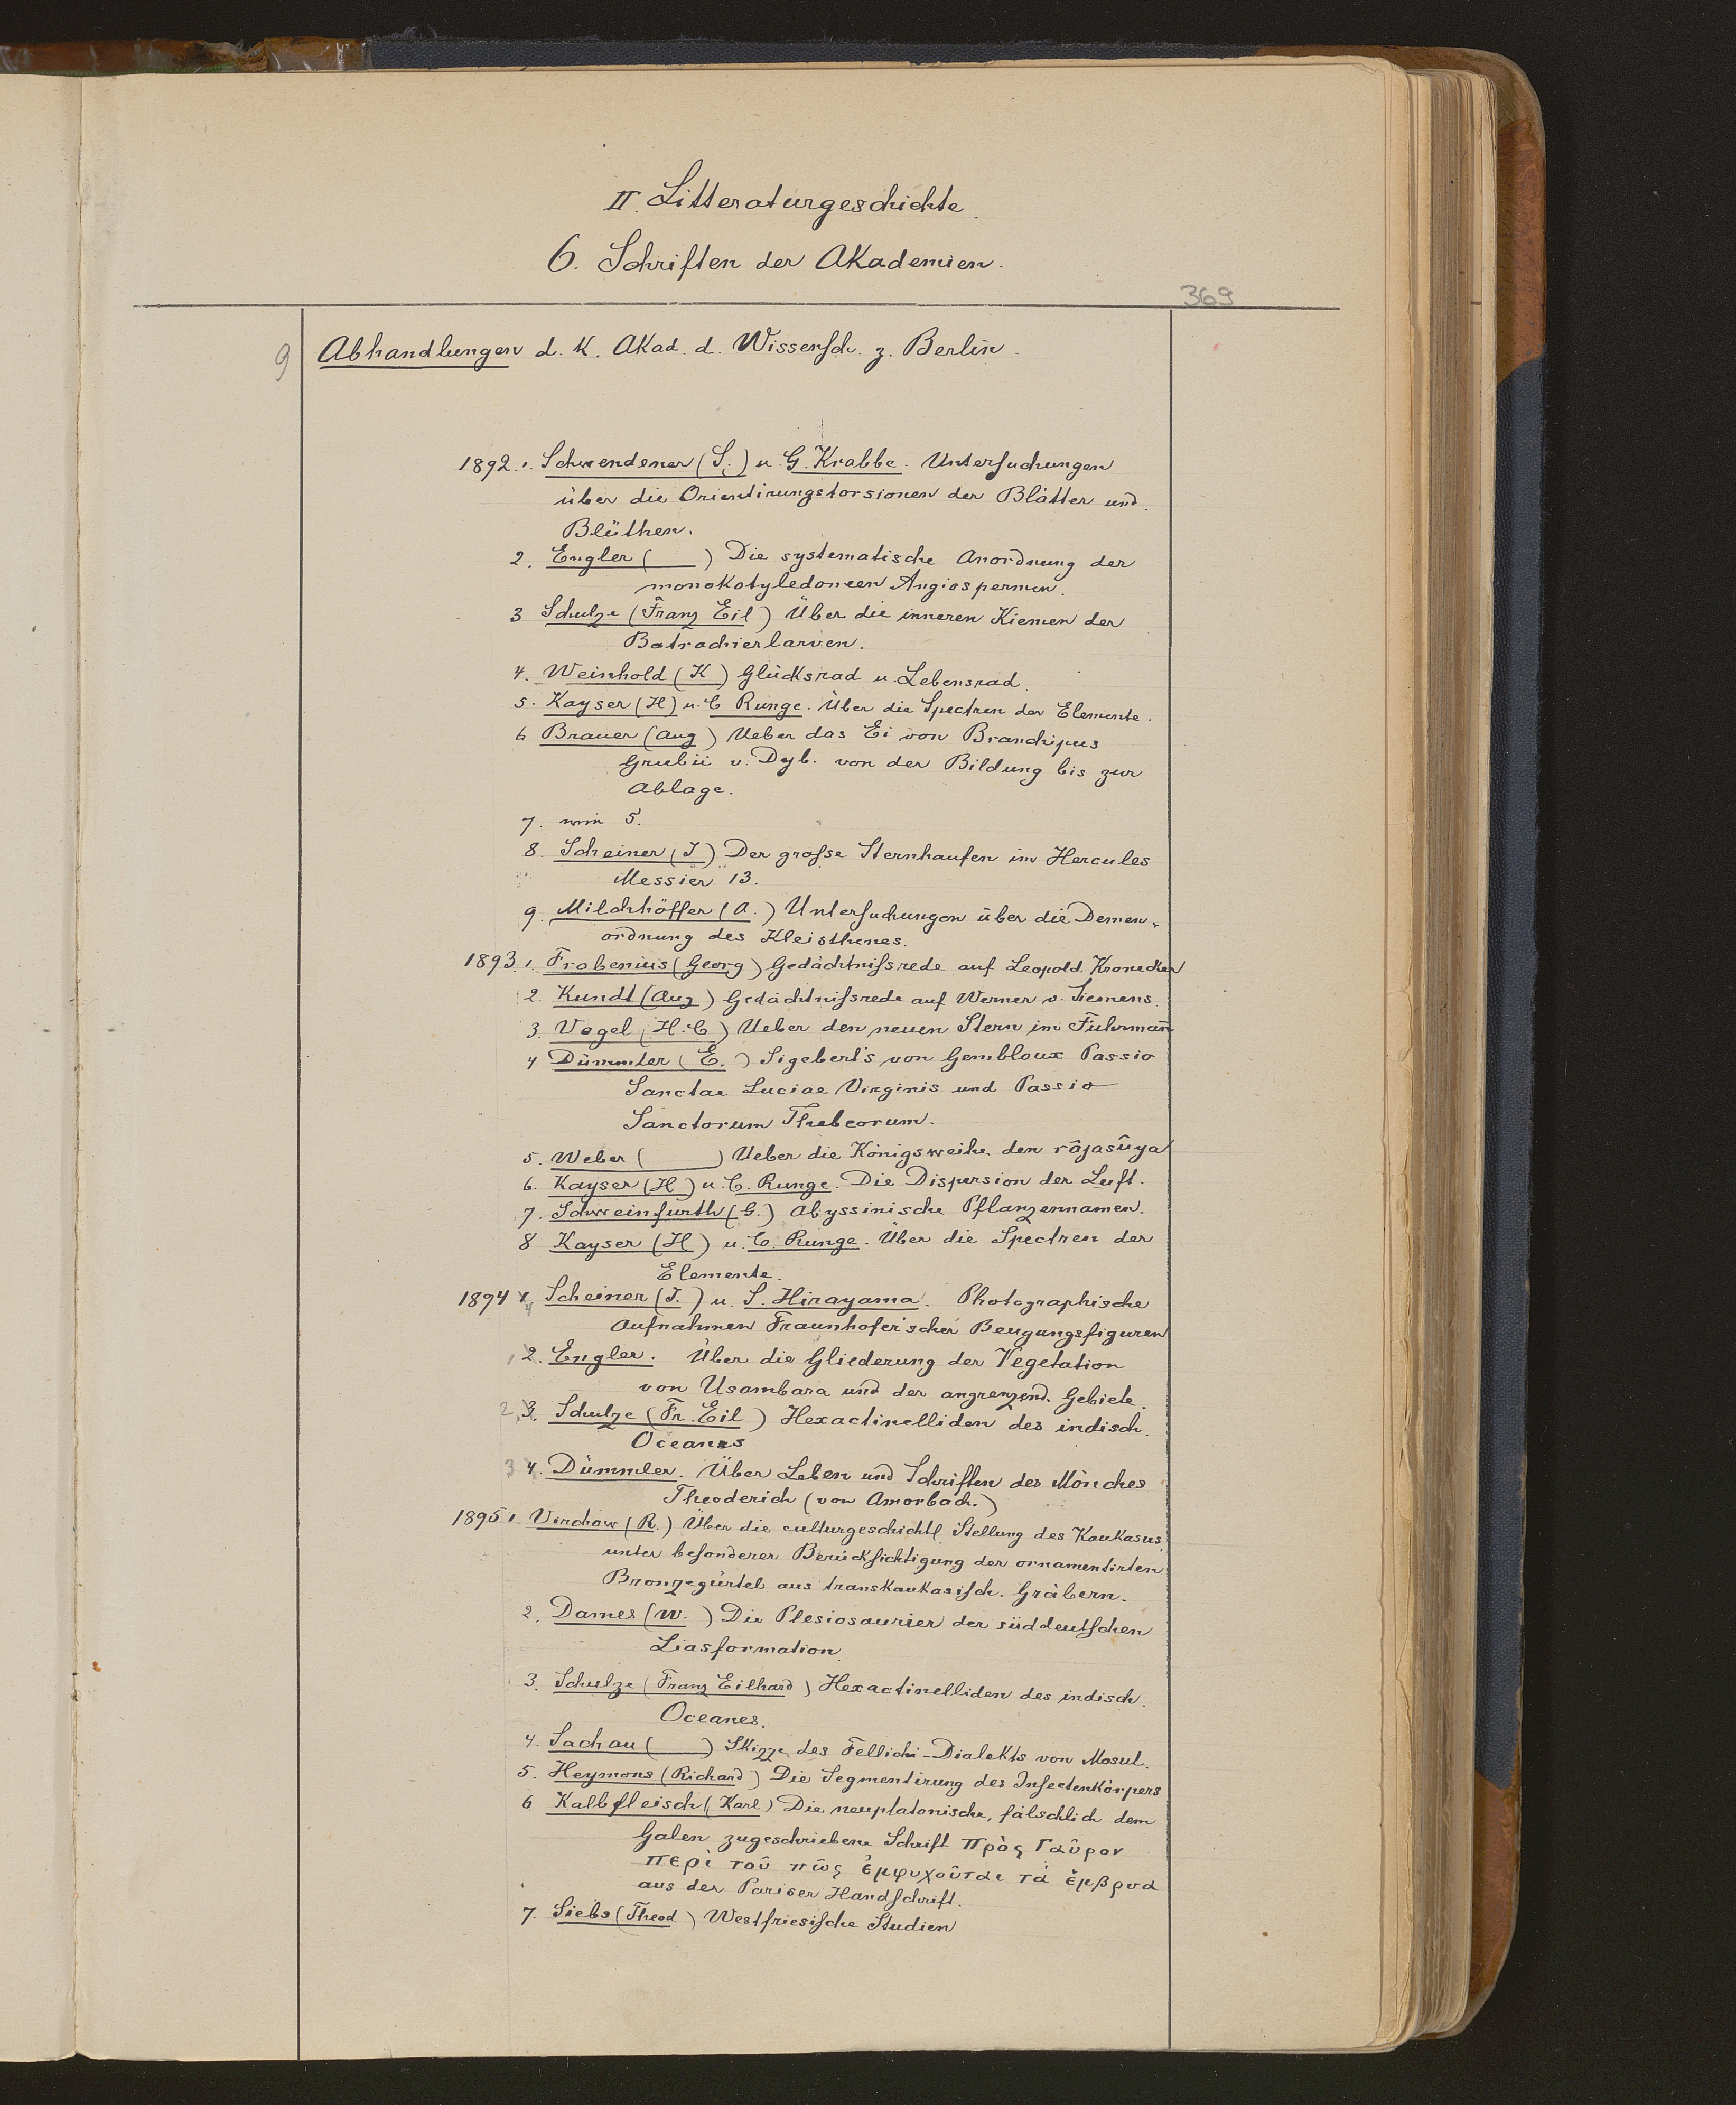 II. Litteraturgeschichte.
6. Schriften der Akademien.
369
9 Abhandlungen d. K. Akad. d. Wissensch. z. Berlin.
1892. 1. Schwendener (S.) u. G. Krabbe. Untersuchungen
über die Orientirungstorsionen der Blätter und
Blüthen.
2. Engler ( ) Die systematische Anordnung der
monokotyledoneen Angiospermen.
3 Schulze (Franz Eil) Über die inneren Kiemen der
Batrachierlarven.
4. Weinhold (K) Glücksrad u. Lebensrad.
5. Kayser (H) u. C Runge. Über die Spectren der Elemente.
6 Brauer (Aug) Ueber das Ei von Branchipus
Grubii v. Dyb. von der Bildung bis zur
Ablage.
7. wie 5.
8. Scheiner (J) Der grosse Sternhaufen im Hercules
Messier 13.
9. Milchhöffer (A.) Untersuchungen über die Demen-
ordnung des Kleisthenes.
1893. 1. Frobenius (Georg) Gedächtnissrede auf Leopold Kronecker
2. Kundt (Aug) Gedächtnissrede auf Werner v. Siemens.
3. Vogel (H. C) Ueber den neuen Stern im Fuhrmañ
4 Dümmler (E.) Sigebert's von Gembloux Passio
Sanctae Luciae Virginis und Passio
Sanctorum Thebeorum.
5. Weber ( ) Ueber die Königsweihe. den râjasûya
6. Kayser (H) u. C. Runge. Die Dispersion der Luft.
7. Schweinfurth (G.) Abyssinische Pflanzennamen.
8 Kayser (H) u. C. Runge. Über die Spectren der
Elemente.
1894 4 Scheiner (J.) u. S. Hirayama. Photographische
Aufnahmen Fraunhofer'scher Beugungsfiguren
1 2. Engler. Über die Gliederung der Vegetation
von Usambara und der angrenzend. Gebiete.
2, 3. Schulze (Fr. Eil) Hexactinelliden des indisch.
Oceanes
3 4. Dümmler. Über Leben und Schriften des Mönches
Theoderich (von Amorbach.)
1895 1. Virchow (R.) Über die culturgeschichtl. Stellung des Kaukasus,
unter besonderer Berücksichtigung der ornamentirten
Bronzegürtel aus transkaukasisch. Gräbern.
2. Dames (W.) Die Plesiosaurier der süddeutschen
Liasformation.
3. Schulze (Franz Eilhard) Hexactinelliden des indisch.
Oceanes.
4. Sachau ( ) Skizze des Fellichi-Dialekts von Mosul.
5. Heymons (Richard) Die Segmentirung des Insectenkörpers
6 Kalbfleisch (Karl) Die neuplatonische, fälschlich dem
Galen zugeschriebene Schrift Πρὸς Γαῦρον
περὶ τοῦ πῶς ἐμψυχοῦται τὰ ἔμβρυα
aus der Pariser Handschrift.
7. Siebs (Theod) Westfriesische Studien